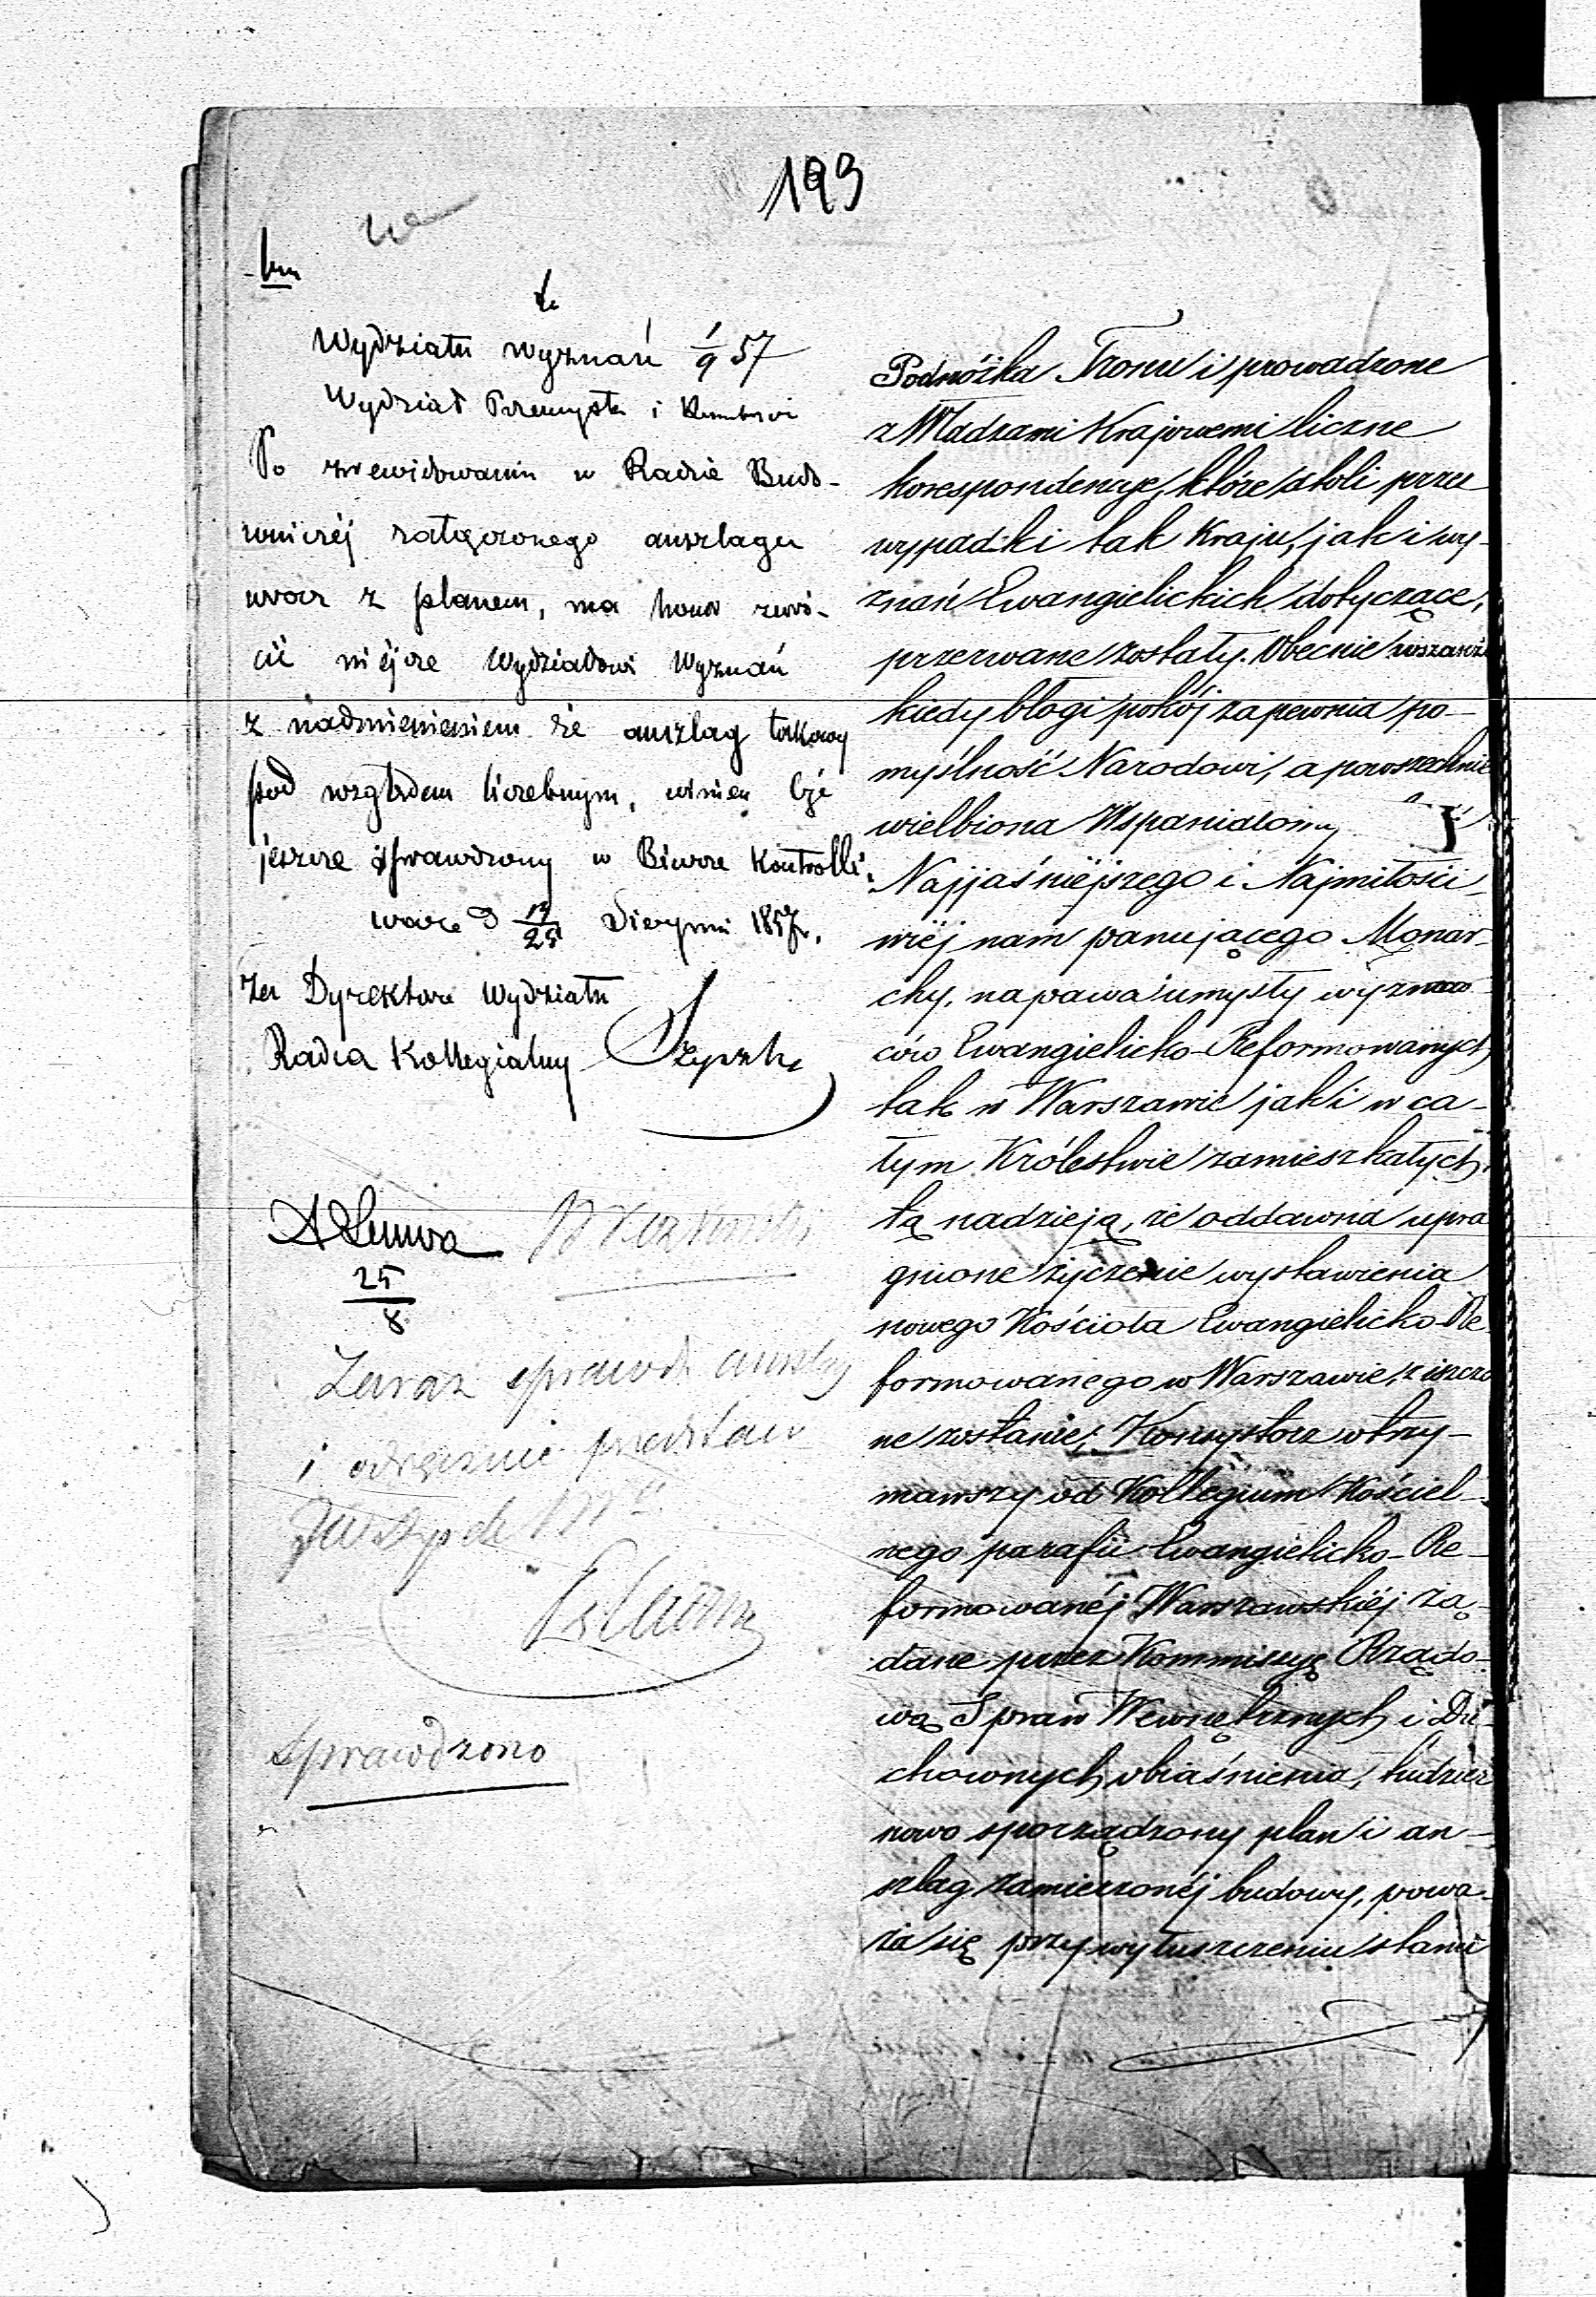 193
Wydziału Wyznań 1/9 57
Wydział Przemysłu i
Po zrewidowaniu w Radzie Budo-
wniczéj załączonego anszlagu
wraz z planem, ma honor zwró-
cić niéjsze Wydziałowi Wyznań
z nadmienieniem że anszlag takowy
pod względem liczebnym, winien być
jeszcze sprawdzony w Biurze Kontrolli.
25 Sierpnia 1857 r.
Za Dyrektora Wydziału
Radca Kollegialny
25/8
Zaraz sprawdź
i odręcznie przedstaw
Sprawdzono
Podnóżka Tronu i prowadzone
z Władzami Krajowemi liczne
korespondencye, które atoli przez
wypadki tak Kraju, jak i wy-
znań Ewangielickich dotyczące,
przerwane zostały. Obecnie wszakże
kiedy błogi pokój zapewnia po-
myślność Narodowi, a powszechnie
wielbiona
Najjaśniéjszego i Najmiłości-
wiéj nam panującego Monar-
chy, napawa umysły wyznaw-
ców Ewangielicko-Reformowanych
tak w Warszawie jak i w ca-
łym Królestwie zamieszkałych,
tą nadzieją, że oddawna upra
gnione życzenie wystawienia
nowego Kościoła Ewangielicko-Re-
formowanego w Warszawie, ziszczo
ne zostanie; Konsystorz otrzy-
mawszy od Kollegium Kościel-
nego parafii Ewangielicko-Re-
formowanéj Warszawskiéj żą-
dane przez Kommissyę Rządo-
wą Spraw Wewnętrznych i Du-
chownych obiaśnienia, tudzież
nowo sporządzony plan i an-
szlag zamierzonéj budowy, powa-
ża się przy wyłuszczeniu stanu